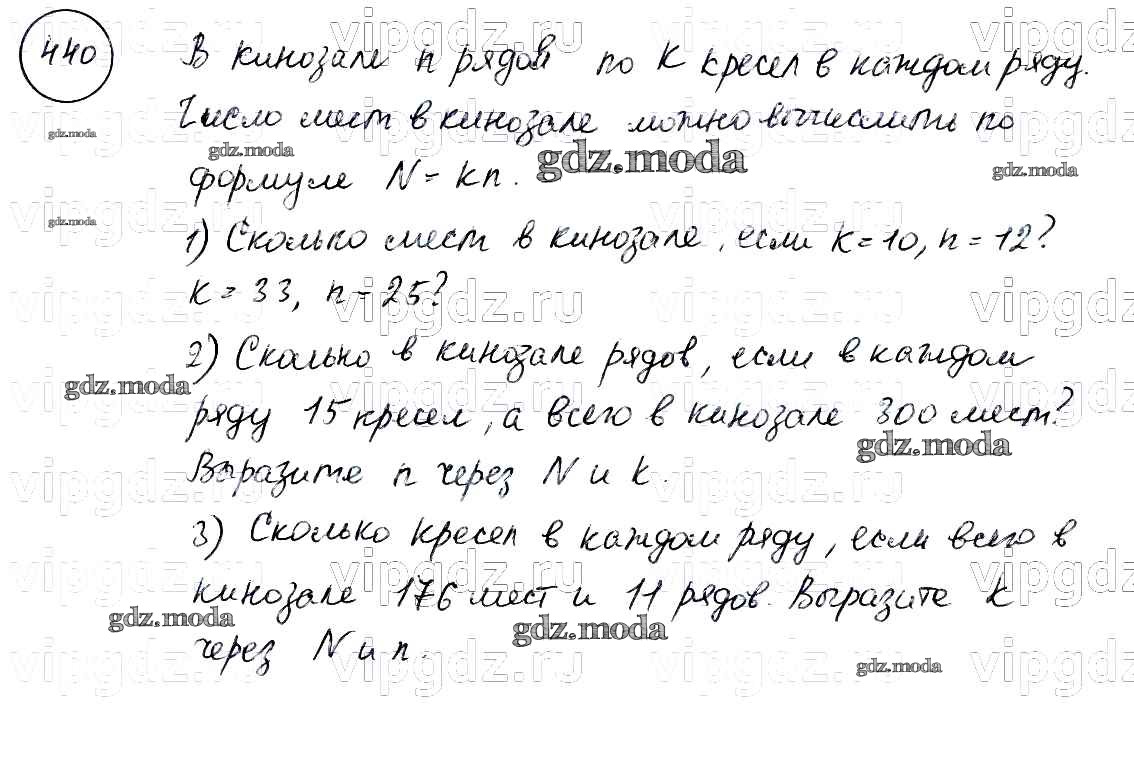 440
В кинозале n рядов по К кресел в каждом ряду.
Число мест в кинозале можно вычислить по
формуле N = kn.
1) Сколько мест в кинозале, если k = 10, n = 12?
k = 33, n = 25?
2) Сколько в кинозале рядов, если в каждом
ряду 15 кресел, а всего в кинозале 300 мест?
Выразите n через N и k.
3) Сколько кресел в каждом ряду, если всего в
кинозале 176 мест и 11 рядов. Выразите k
через N и n.
gdz.moda
vipgdz.ru